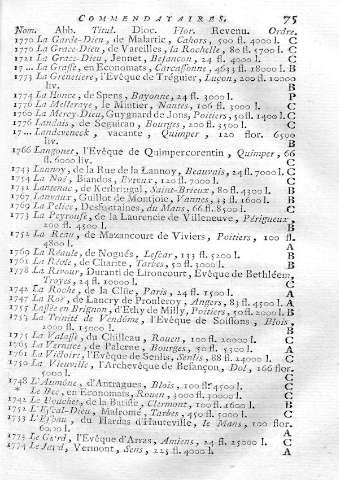 COMMENDATAIRES. 75
Nom. Abb. Titul. Dioc. Flor. Revenu. Ordre.
1770 La Garde-Dieu, de Malartic, Cahors, 500 fl. 4000 l. C
1770 La Grace-Dieu, de Vareilles, la Rochelle, 80 fl. 5700 l. C
1721 La Grace-Dieu, Jennet, Besançon, 24 fl. 4000 l. C
17... La Grasse, en Economats, Carcassonne, 4633 fl. 18000 l. B
1773 La Grenetiere, l'Evêque de Tréguier, Luçon, 200 fl. 10000
liv. B
1774 La Honce, de Spens, Bayonne, 24 fl. 3000 l. P
1770 La Melleraye, le Mintier, Nantes, 106 fl. 3000 l. C
1760 La Mercy-Dieu, Guygnard de Jons, Poitiers, 50 fl. 1400 l. C
1776 Landais, de Seguiran, Bourges, 200 fl. 3500 l. C
17... Landeveneck, vacante, Quimper, 120 flor. 6500
liv. B
1766 Langonet, l'Evêque de Quimpercorentin, Quimper, 66
fl. 6000 liv. C
1743 Lannoy, de la Rue de la Lannoy, Beauvais, 24 fl. 7000 l. C
1754 La Noë, Biandos, Evreux, 120 fl. 7000 l. C
1731 Lantenac, de Kerbrigal, Saint-Brieux, 80 fl. 4300 l. B
1767 Lanvaux, Guillot de Montjoie, Vannes, 33 fl. 1600 l. C
1769 La Pelice, Desfontaines, du Mans, 66 fl. 8500 l. B
1773 La Peyrouse, de la Laurencie de Villeneuve, Périgueux,
200 fl. 4500 l. C
1752 La Reau, de Mazancourt de Viviers, Poitiers, 100 fl.
4800 l. A
1769 La Réaule, de Nogués, Lescar, 133 fl. 5200 l. B
1761 La Réole, de Charite, Tarbes, 50 fl. 3000 l. B
1778 La Rivour, Duranti de Lironcourt, Evêque de Bethléem,
Troyes, 24 fl. 10000 l. C
1742 La Roche, de la Clite, Paris, 24 fl. 1500 l. A
1747 La Roë, de Lancry de Pronleroy, Angers, 83 fl. 4500 l. A
1757 Lassée en Brignon, d'Ethy de Milly, Poitiers, 50 fl. 2000 l. B
1753 La Trinité de Vendôme, l'Evêque de Soissons, Blois,
2000 fl. 15000 l. B
1775 La Valasse, du Chilleau, Rouen, 100 fl. 20000 l. C
1763 La Vernuce, de Palerne, Bourges, 30 fl. 3300 l. A
1761 La Victoire, l'Evêque de Senlis, Senlis, 88 fl. 24000 l. C
1750 La Vieuville, l'Archevêque de Besançon, Dol, 166 flor.
5000 l. C
1748 L'Aumône, d'Antragues, Blois, 100 fl. 4500 l. C
* Le Bec, en Economats, Rouen, 3000 fl. 30000 l. B
1742 Le Bouchet, de la Batisse, Clermont, 100 fl. 1600 l. C
1752 L'Escal-Dieu, Malromé, Tarbes, 450 fl. 5000 l. C
1733 du Hardas d'Hauteville, le Mans, 100 flor. C
1773 Le Gard, l'Evêque d'Arras, Amiens, 24 fl. 25000 l. C
1774 Le Jard, Vermont, Sens, 225 fl. 4000 l. A